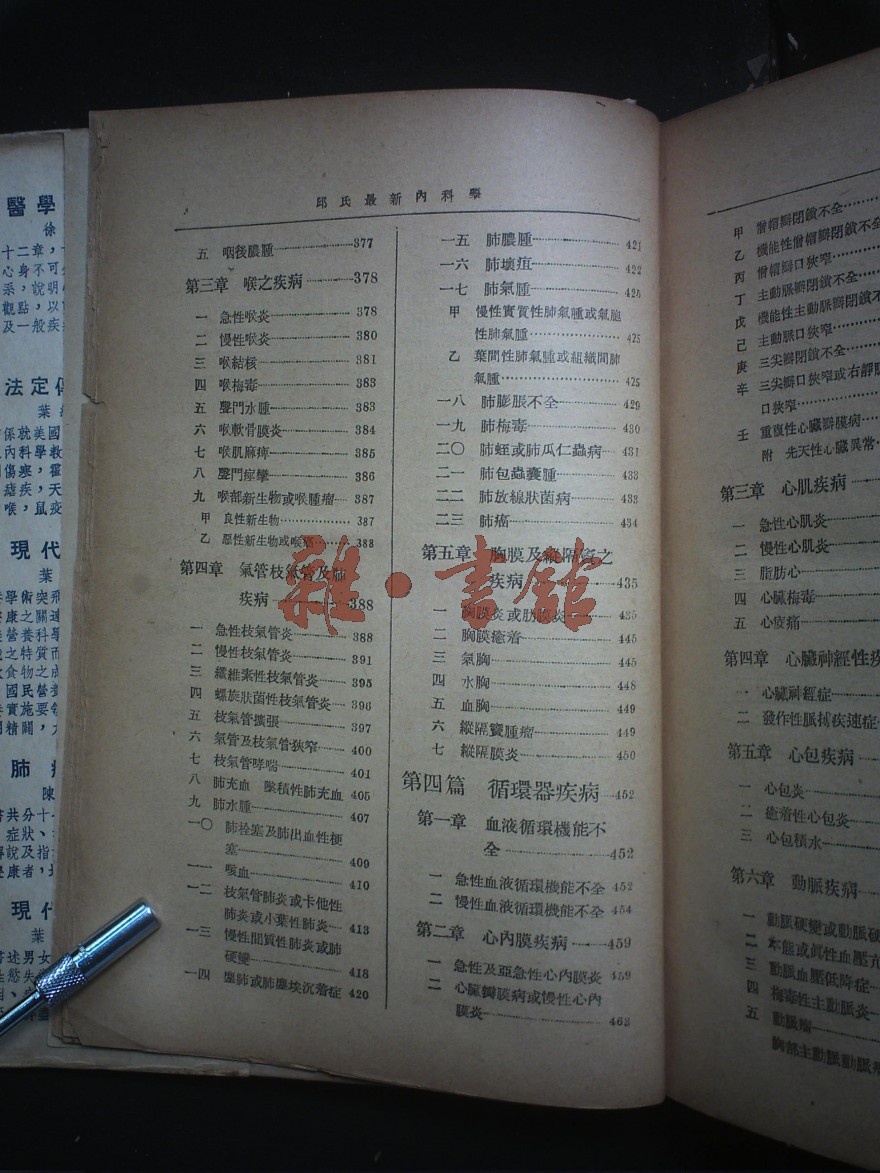 邱氏最新內科學
五 咽後膿腫 377
第三章 喉之疾病 378
一 急性喉炎 378
二 慢性喉炎 380
三 喉結核 381
四 喉梅毒 383
五 聲門水腫 383
六 喉軟骨膜炎 384
七 喉肌麻痺 385
八 聲門痙攣 386
九 喉部新生物或喉腫瘤 387
甲 良性新生物 387
乙 惡性新生物或喉癌 388
第四章 氣管枝氣管及肺
疾病 388
一 急性枝氣管炎 388
二 慢性枝氣管炎 391
三 纖維素性枝氣管炎 395
四 螺旋狀菌性枝氣管炎 396
五 枝氣管擴張 397
六 氣管及枝氣管狹窄 400
七 枝氣管哮喘 401
八 肺充血 墜積性肺充血 405
九 肺水腫 407
一〇 肺栓塞及肺出血性梗
塞 409
一一 咳血 410
一二 枝氣管肺炎或卡他性
肺炎或小葉性肺炎 413
一三 慢性間質性肺炎或肺
硬變 418
一四 塵肺或肺塵埃沉着症 420
一五 肺膿腫 421
一六 肺壞疽 422
一七 肺氣腫 425
甲 慢性實質性肺氣腫或氣胞
性肺氣腫 425
乙 葉間性肺氣腫或組織間肺
氣腫 425
一八 肺膨脹不全 429
一九 肺梅毒 430
二〇 肺蛭或肺瓜仁蟲病 431
二一 肺包蟲囊腫 433
二二 肺放線狀菌病 433
二三 肺癌 434
第五章 胸膜及縱隔竇之
疾病 435
一 胸膜炎或肋膜炎 435
二 胸膜癒着 445
三 氣胸 445
四 水胸 448
五 血胸 449
六 縱隔竇腫瘤 449
七 縱隔膜炎 450
第四篇 循環器疾病 452
第一章 血液循環機能不
全 452
一 急性血液循環機能不全 452
二 慢性血液循環機能不全 454
第二章 心內膜疾病 459
一 急性及亞急性心內膜炎 459
二 心臟瓣膜病或慢性心內
膜炎 462
甲 僧帽瓣閉鎖不全
乙 機能性僧帽瓣閉鎖不全
丙 僧帽瓣口狹窄
丁 主動脈瓣閉鎖不全
戊 機能性主動脈瓣閉鎖不
己 主動脈口狹窄
庚 三尖瓣閉鎖不全
辛 三尖瓣口狹窄或右靜脈
口狹窄
壬 重複性心臟瓣膜病
附 先天性心臟異常
第三章 心肌疾病
一 急性心肌炎
二 慢性心肌炎
三 脂肪心
四 心臟梅毒
五 心痠痛
第四章 心臟神經性疾
一 心臟神經症
二 發作性脈搏疾速症
第五章 心包疾病
一 心包炎
二 癒着性心包炎
三 心包積水
第六章 動脈疾病
一 動脈硬變或動脈硬
二 本態或眞性血壓亢
三 動脈血壓低降症
四 梅毒性主動脈炎
五 動脈瘤
胸部主動脈動脈瘤
醫學
徐
十二章，
心身不可
采，說明
觀點，以
及一般疾
法定傳
葉
係就美國
內科學教
傷寒，霍
瘧疾，天
喉，鼠疫
現代
葉
學術突飛
康之關連
營養科學
之特質而
食物之成
國民營養
實施要領
精闢，
肺
陳
書共分十
症狀、
解說及指
康者，
現代
葉
述男女
性慾失
雅·書館